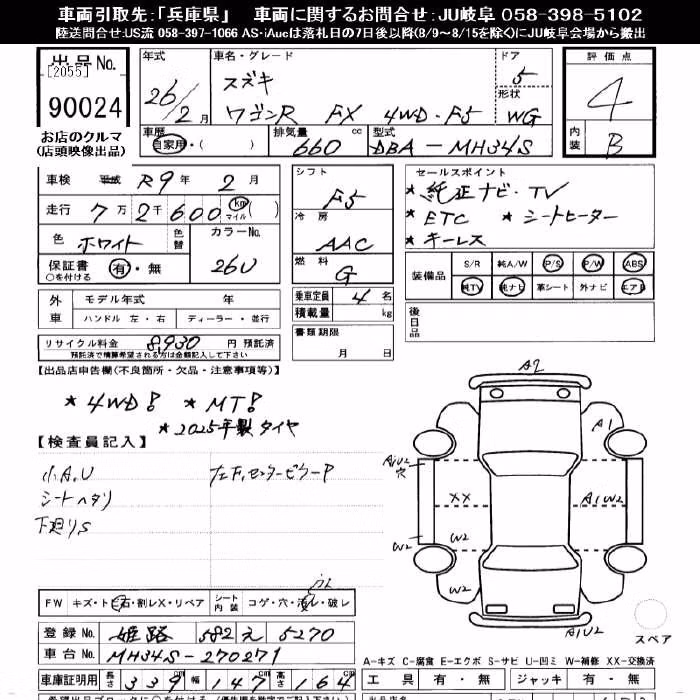 車両引取先:「兵庫県」 車両に関するお問合せ:JU岐阜 058-398-5102
陸送問合せ:US流 058-397-1066 AS・iAucは落札日の7日後以降(8/9～8/15を除く)にJU岐阜会場から搬出
出品No.
[2055]
90024
お店のクルマ
(店頭映像出品)
年式 車名・グレード ドア
スズキ 5
26/2月 ワゴンR FX 4WD・F5 形状 WG
車歴 自家用・( ) 排気量 660 cc 型式 DBA-MH34S
評価点
4
内装 B
車検 平成 R9年 2月
走行 7万2千600 km マイル ( )
色 ホワイト 色替 カラーNo. 26U
保証書 有・無
○を付ける
シフト F5
冷房 AAC
燃料 G
乗車定員 4名
積載量 kg
書類期限
月 日
セールスポイント
★純正ナビ・TV
★ETC ★シートヒーター
★キーレス
装備品 S/R 純A/W P/S P/W ABS
純TV 純ナビ 革シート 外ナビ エアB
後日品
外車 モデル年式 年
ハンドル 左・右 ディーラー・並行
リサイクル料金 8,930 円 預託済
預託済で精算希望される方は金額記入して下さい
【出品店申告欄(不良箇所・欠品・注意事項等)】
★4WD! ★MT!
★2025年製タイヤ
【検査員記入】
小A,U 左F,センターピラーP
シートヘタリ
下廻りS
FW キズ・ト石・割レX・リペア シート内装 コゲ・穴・汚レ・破レ
登録No. 姫路 582 え 5270
車台No. MH34S-270271
車庫証明用 長さ 339 幅 147 高さ 164
A2
A1
AU2
穴
XX
A1W2
W2
W2
W2
A1U2
スペア
A-キズ C-腐食 E-エクボ S-サビ U-凹ミ W-補修 XX-交換済
工具 有・無 ジャッキ 有・無